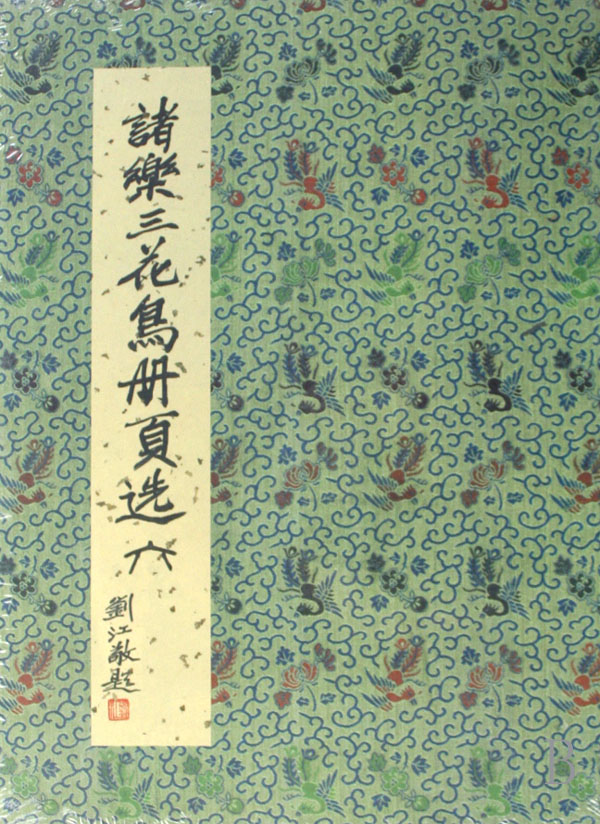 諸樂三花鳥册頁选 六
劉江敬題